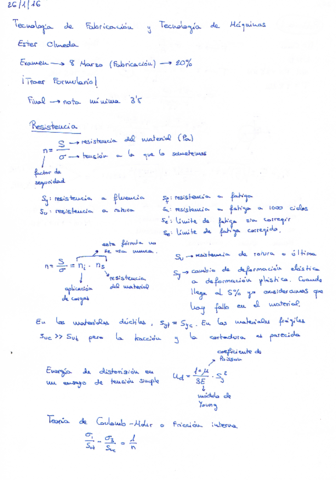 26/1/16
Tecnología de Fabricación y Tecnología de Máquinas
Ester Olmeda
Examen → 8 Marzo (Fabricación) → 20%
¡Traer Formulario!
Final → nota mínima 3'5
Resistencia
n = S/σ
S → resistencia del material (Pa)
σ → tensión a la que lo sometemos
factor de seguridad
Sy: resistencia a fluencia
Su: resistencia a rotura
Sf: resistencia a fatiga
Sl: resistencia a fatiga a 1000 ciclos
Se': límite de fatiga sin corregir
Se: límite de fatiga corregido.
esta fórmula no se usa nunca.
n = S/σ = ni · ns
aplicación de cargas
resistencia del material
Su → resistencia de rotura o última
Sy → cambio de deformación elástica a deformación plástica. Cuando llega al 5% ya consideramos que hay fallo en el material.
En los materiales dúctiles, Syt = Syc. En los materiales frágiles
Suc >> Sut pero la tracción y la cortadura es parecida
coeficiente de Poisson
Energía de distorsión en un ensayo de tensión simple
Ud = (1+μ)/3E · Sy²
módulo de Young
Teoría de Coulomb-Mohr o Fricción interna
σ1/Sut - σ3/Suc = 1/n